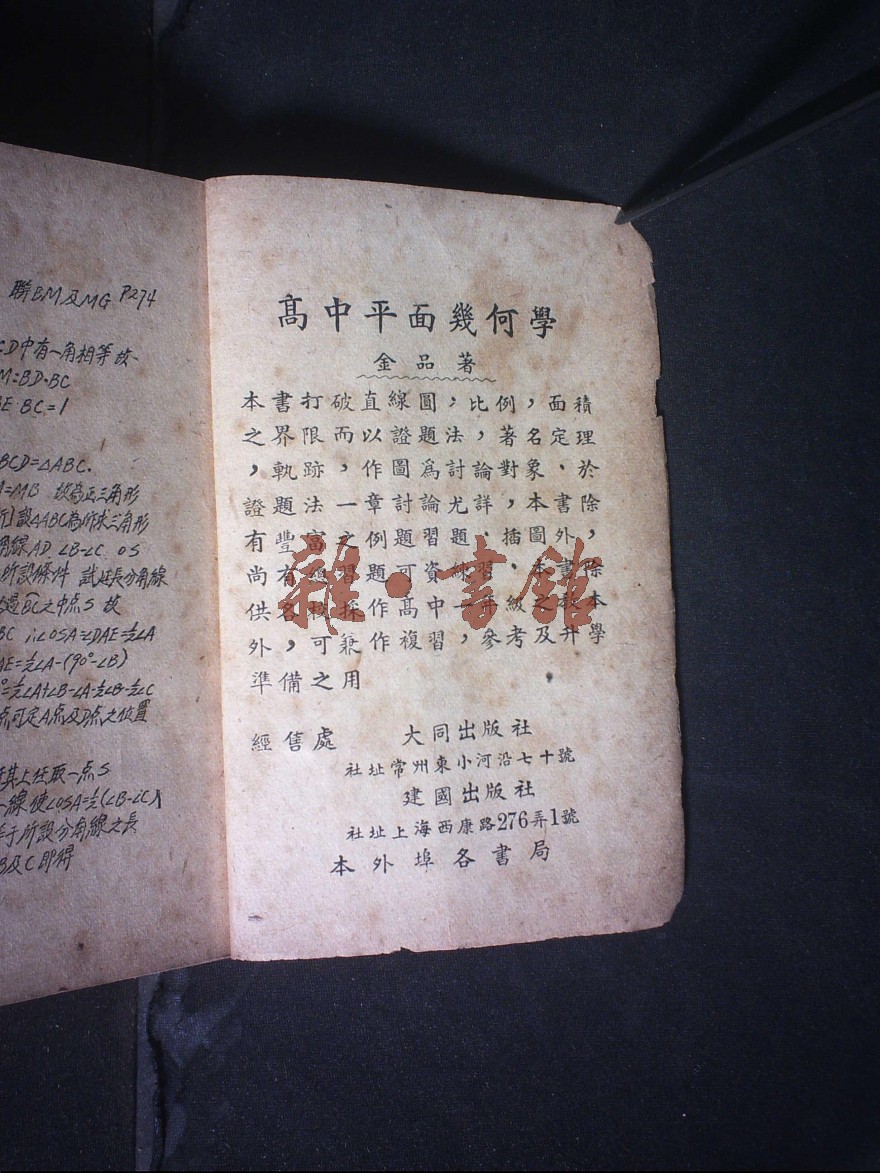 聯BM及MG P274
CD中有一角相等故
M=BD·BC
BE·BC=1
BCD=△ABC.
=MB 故為正三角形
設△ABC為所求三角形
角線AD ∠B-∠C OS
所設條件 試延長分角線
過BC之中点S 故
BC ∴∠OSA=∠DAE=½∠A
AE=½∠A-(90°-∠B)
=½∠A+∠B-½∠A-½∠B-½∠C
点可定A点及D点之位置
其上任取一点S
一線使∠OSA=½(∠B-∠C)
于所設分角線之長
B及C即得
高中平面幾何學
金品著
本書打破直線圖，比例，面積
之界限而以證題法，著名定理
，軌跡，作圖為討論對象．於
證題法一章討論尤詳，本書除
有豐富之例題習題．插圖外，
尚有習題可資練習，本書除
供各校採作高中一年級之教本
外，可兼作複習，參考及升學
準備之用
經售處 大同出版社
社址常州東小河沿七十號
建國出版社
社址上海西康路276弄1號
本外埠各書局
雜·書館